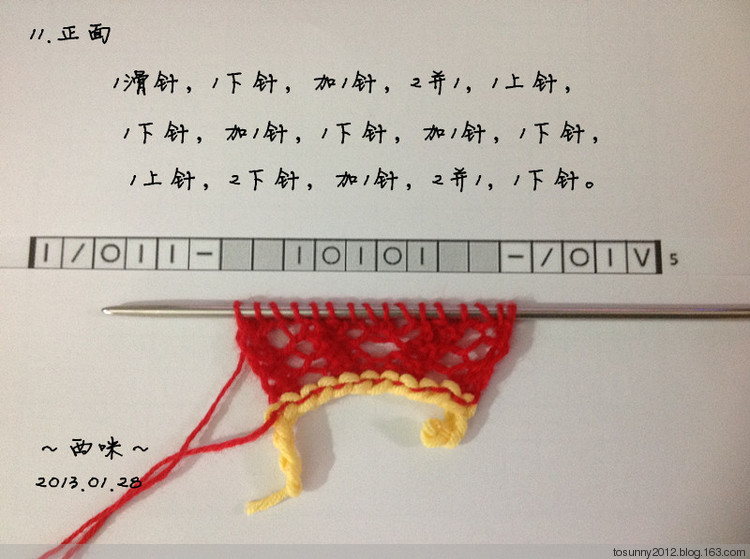 11.正面
1滑针，1下针，加1针，2并1，1上针，
1下针，加1针，1下针，加1针，1下针，
1上针，2下针，加1针，2并1，1下针。
I / O I I - I O I O I - / O I V 5
～西咪～
2013.01.28
tosunny2012.blog.163.com